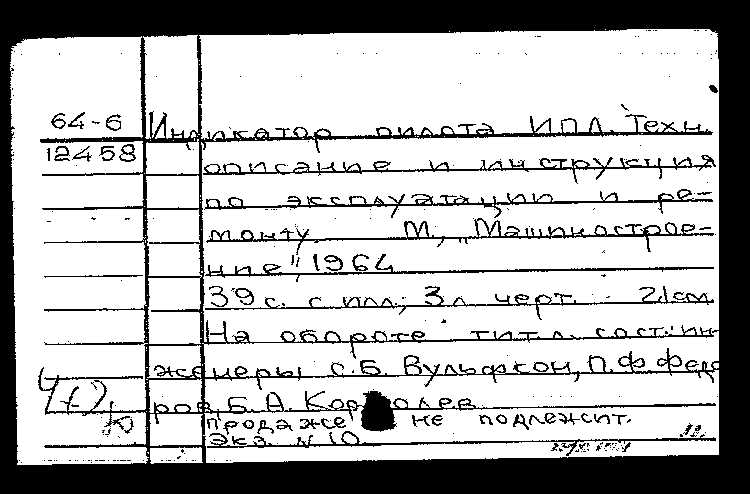 64-6 Индикатор пилота ИПЛ. Техн.
12458 описание и инструкция
по эксплуатации и ре-
монту М., „Машинострое-
ние", 1964
39 с. с илл.; 3 л. черт. 21 см
На обороте тит. л. сост: ин-
женеры С. Б. Вульфкон, П. Ф. Федо
ров, Б. А. Королев
продаже не подлежит.
Экз. N 10